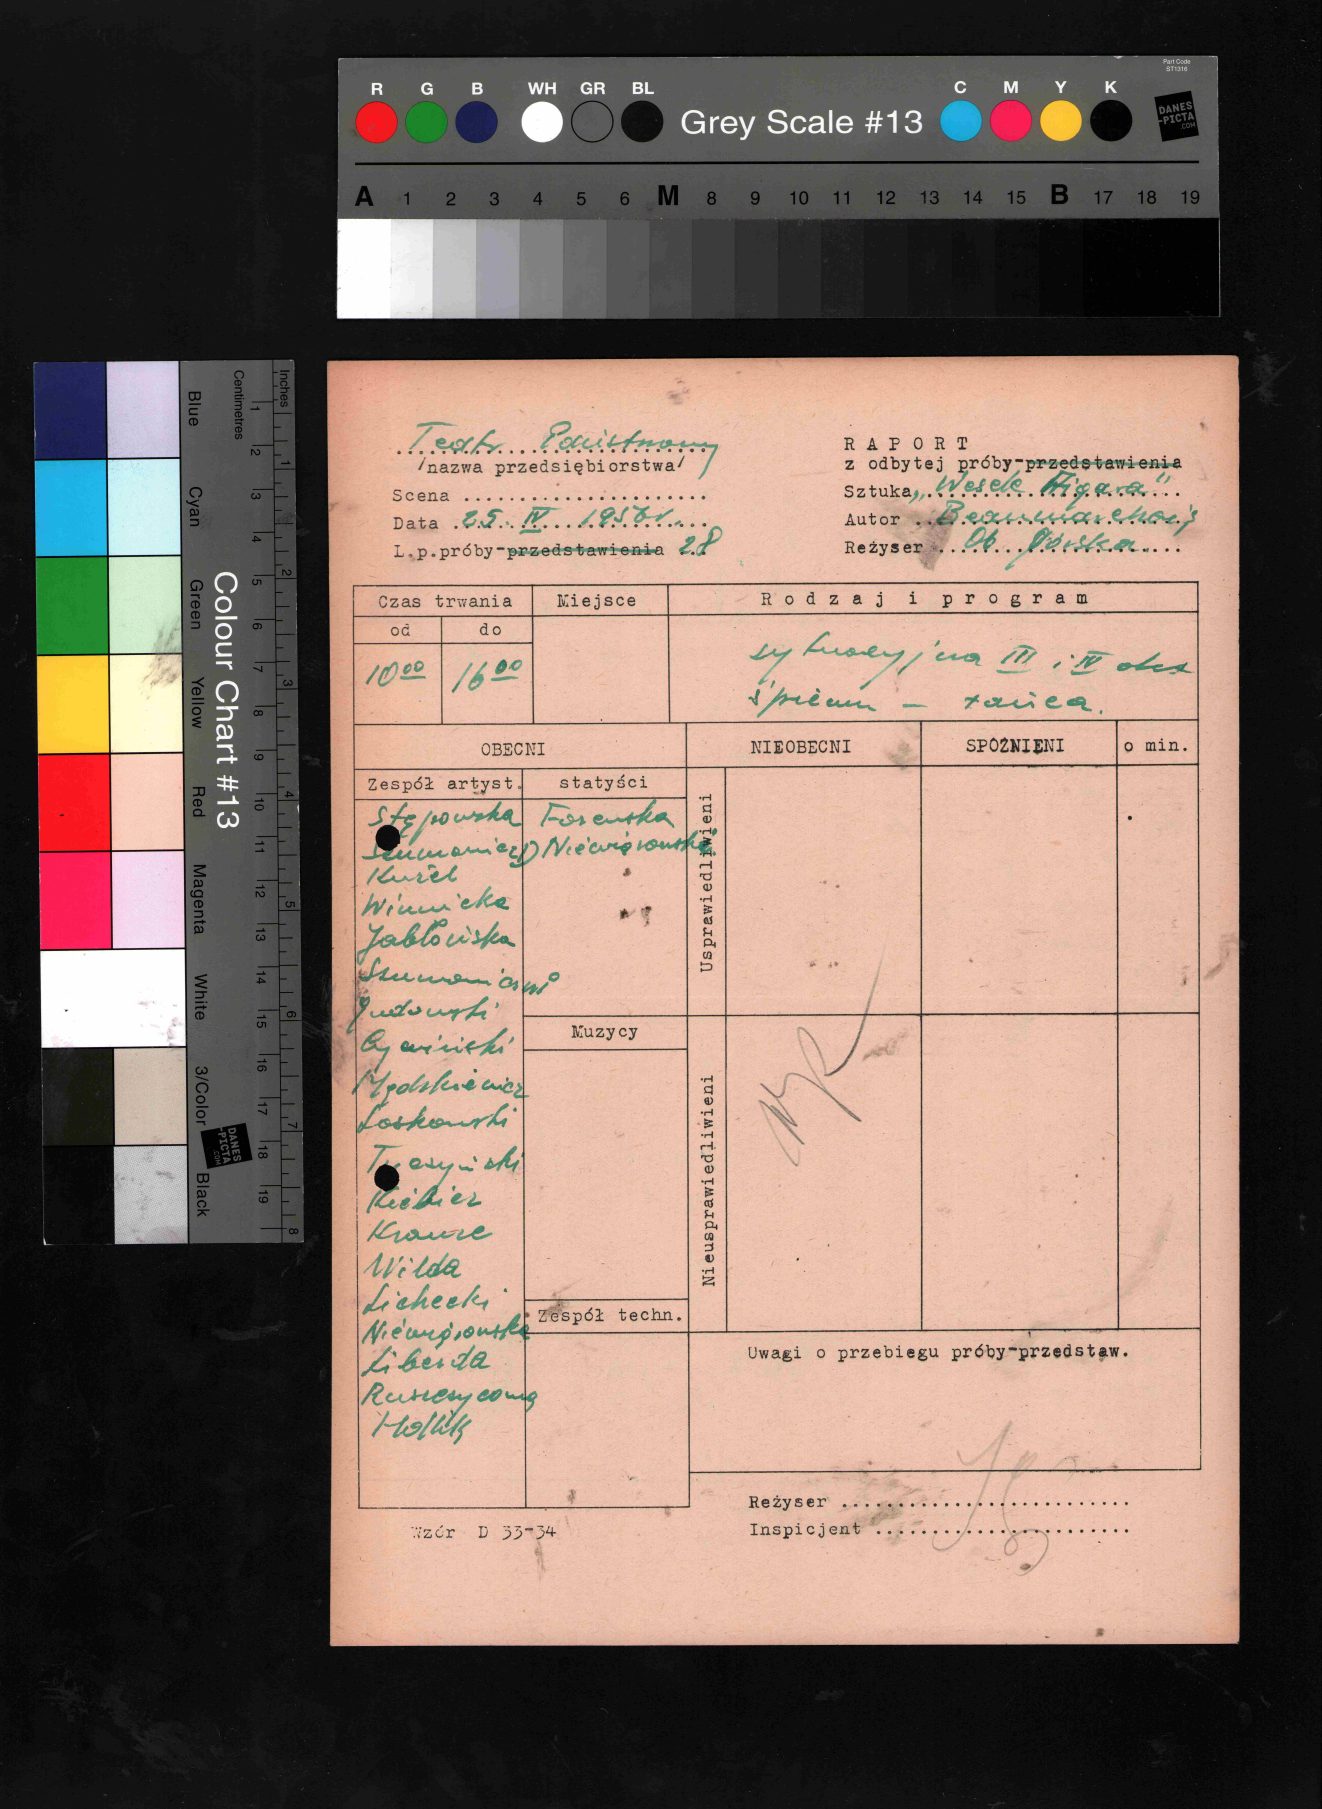 Part Code
ST1316
R G B WH GR BL Grey Scale #13 C M Y K
DANES
-PICTA
.COM
A 1 2 3 4 5 6 M 8 9 10 11 12 13 14 15 B 17 18 19
Colour Chart #13
Blue Cyan Green Yellow Red Magenta White 3/Color Black
Centimetres 1 2 3 4 5 6 7 8 9 10 11 12 13 14 15 16 17 18 19
Inches 1 2 3 4 5 6 7 8
DANES
-PICTA
.COM
Teatr Państwowy
/nazwa przedsiębiorstwa/
Scena
Data 25 IV 1956r.
L.p.próby-przedstawienia 28
RAPORT
z odbytej próby-przedstawienia
Sztuka „Wesele Figara"
Autor Beaumarchais
Reżyser Ob. Górska
Czas trwania Miejsce Rodzaj i program
od do
10⁰⁰ 16⁰⁰
sytuacyjna III i IV akt
śpiewu - tańca.
OBECNI NIEOBECNI SPÓŹNIENI o min.
Zespół artyst. statyści
Stępowska Forenska
Niewiarowska
Kuźel
Winnicka
Jabłońska
Cywiński
Laskowski
Krause
Wilda
Lichecki
Niewiarowska
Liberda
Usprawiedliwieni
Muzycy
Nieusprawiedliwieni
Zespół techn.
Uwagi o przebiegu próby-przedstaw.
Reżyser
Inspicjent
Wzór D 33-34